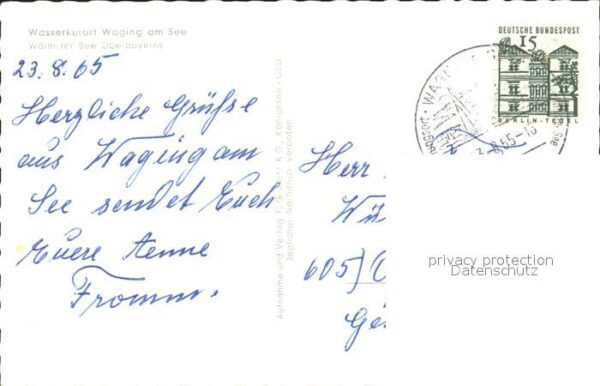 Wasserkurort Waging am See
Wärmster See Oberbayerns
23.8.65
Herzliche Grüße
aus Waging am
See sendet Euch
Euere Aenne
Fromm.
Aufnahme und Verlag F. G. K G, Königssee / Obb
Jeglicher Nachdruck verboten
DEUTSCHE BUNDESPOST
15
BERLIN-TEGEL
WAGING
8.65-15
Herr
605
privacy protection
Datenschutz